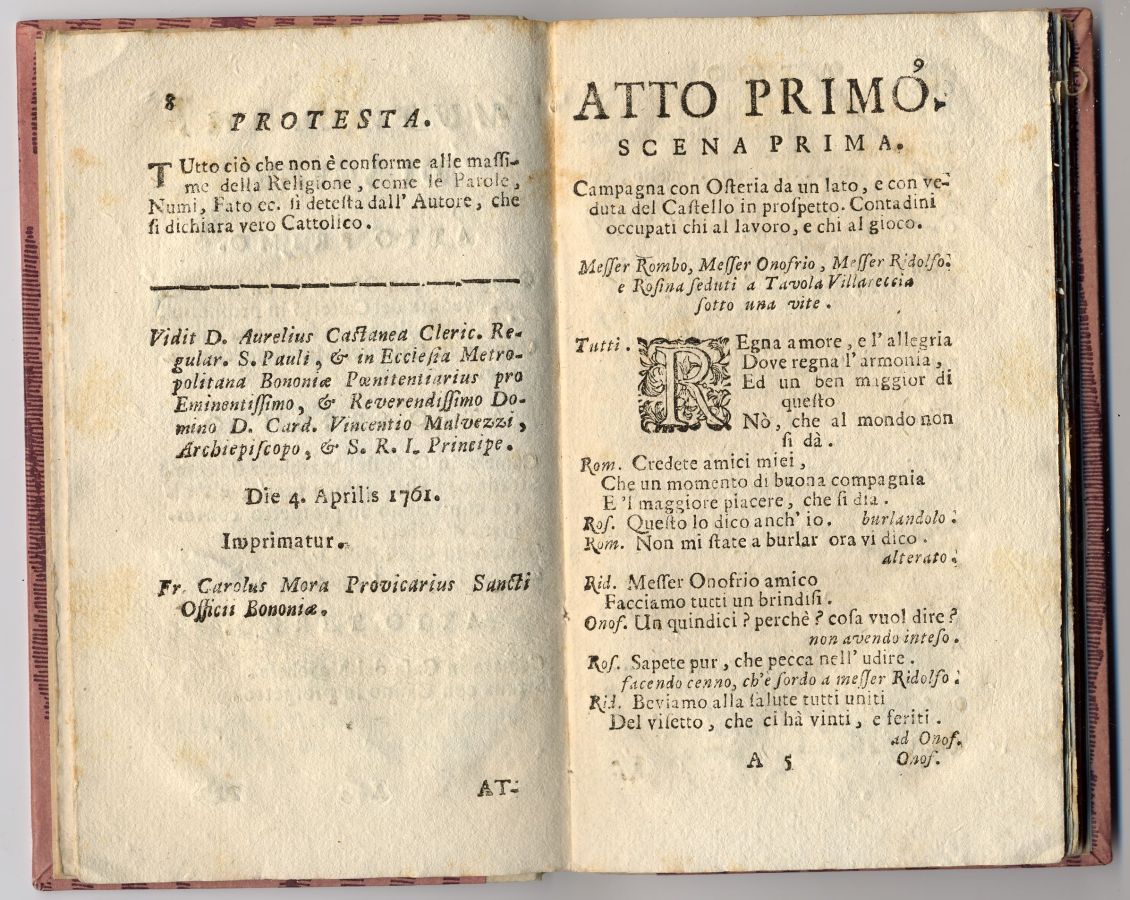 8
PROTESTA.
TUtto ciò che non è conforme alle maſſi-
me della Religione, come le Parole,
Numi, Fato ec. ſi deteſta dall' Autore, che
ſi dichiara vero Cattolico.
Vidit D. Aurelius Caſtanea Cleric. Re-
gular. S. Pauli, & in Eccleſia Metro-
politana Bononiæ Pœnitentiarius pro
Eminentiſſimo, & Reverendiſſimo Do-
mino D. Card. Vincentio Malvezzi,
Archiepiſcopo, & S. R. I. Principe.
Die 4. Aprilis 1761.
Imprimatur.
Fr. Carolus Mora Provicarius Sancti
Officii Bononiæ.
AT-
9
ATTO PRIMO.
SCENA PRIMA.
Campagna con Oſteria da un lato, e con ve-
duta del Caſtello in proſpetto. Contadini
occupati chi al lavoro, e chi al gioco.
Meſſer Rombo, Meſſer Onofrio, Meſſer Ridolfo.
e Roſina ſeduti a Tavola Villareccia
ſotto una vite.
Tutti. REgna amore, e l' allegria
Dove regna l' armonia,
Ed un ben maggior di
queſto
Nò, che al mondo non
ſi dà.
Rom. Credete amici miei,
Che un momento di buona compagnia
E 'l maggiore piacere, che ſi dia.
Roſ. Queſto lo dico anch' io. burlandolo.
Rom. Non mi ſtate a burlar ora vi dico.
alterato.
Rid. Meſſer Onofrio amico
Facciamo tutti un brindiſi.
Onof. Un quindici? perchè? coſa vuol dire?
non avendo inteſo.
Roſ. Sapete pur, che pecca nell' udire.
facendo cenno, ch'è ſordo a meſſer Ridolfo.
Rid. Beviamo alla ſalute tutti uniti
Del viſetto, che ci hà vinti, e feriti.
ad Onof.
A 5 Onof.